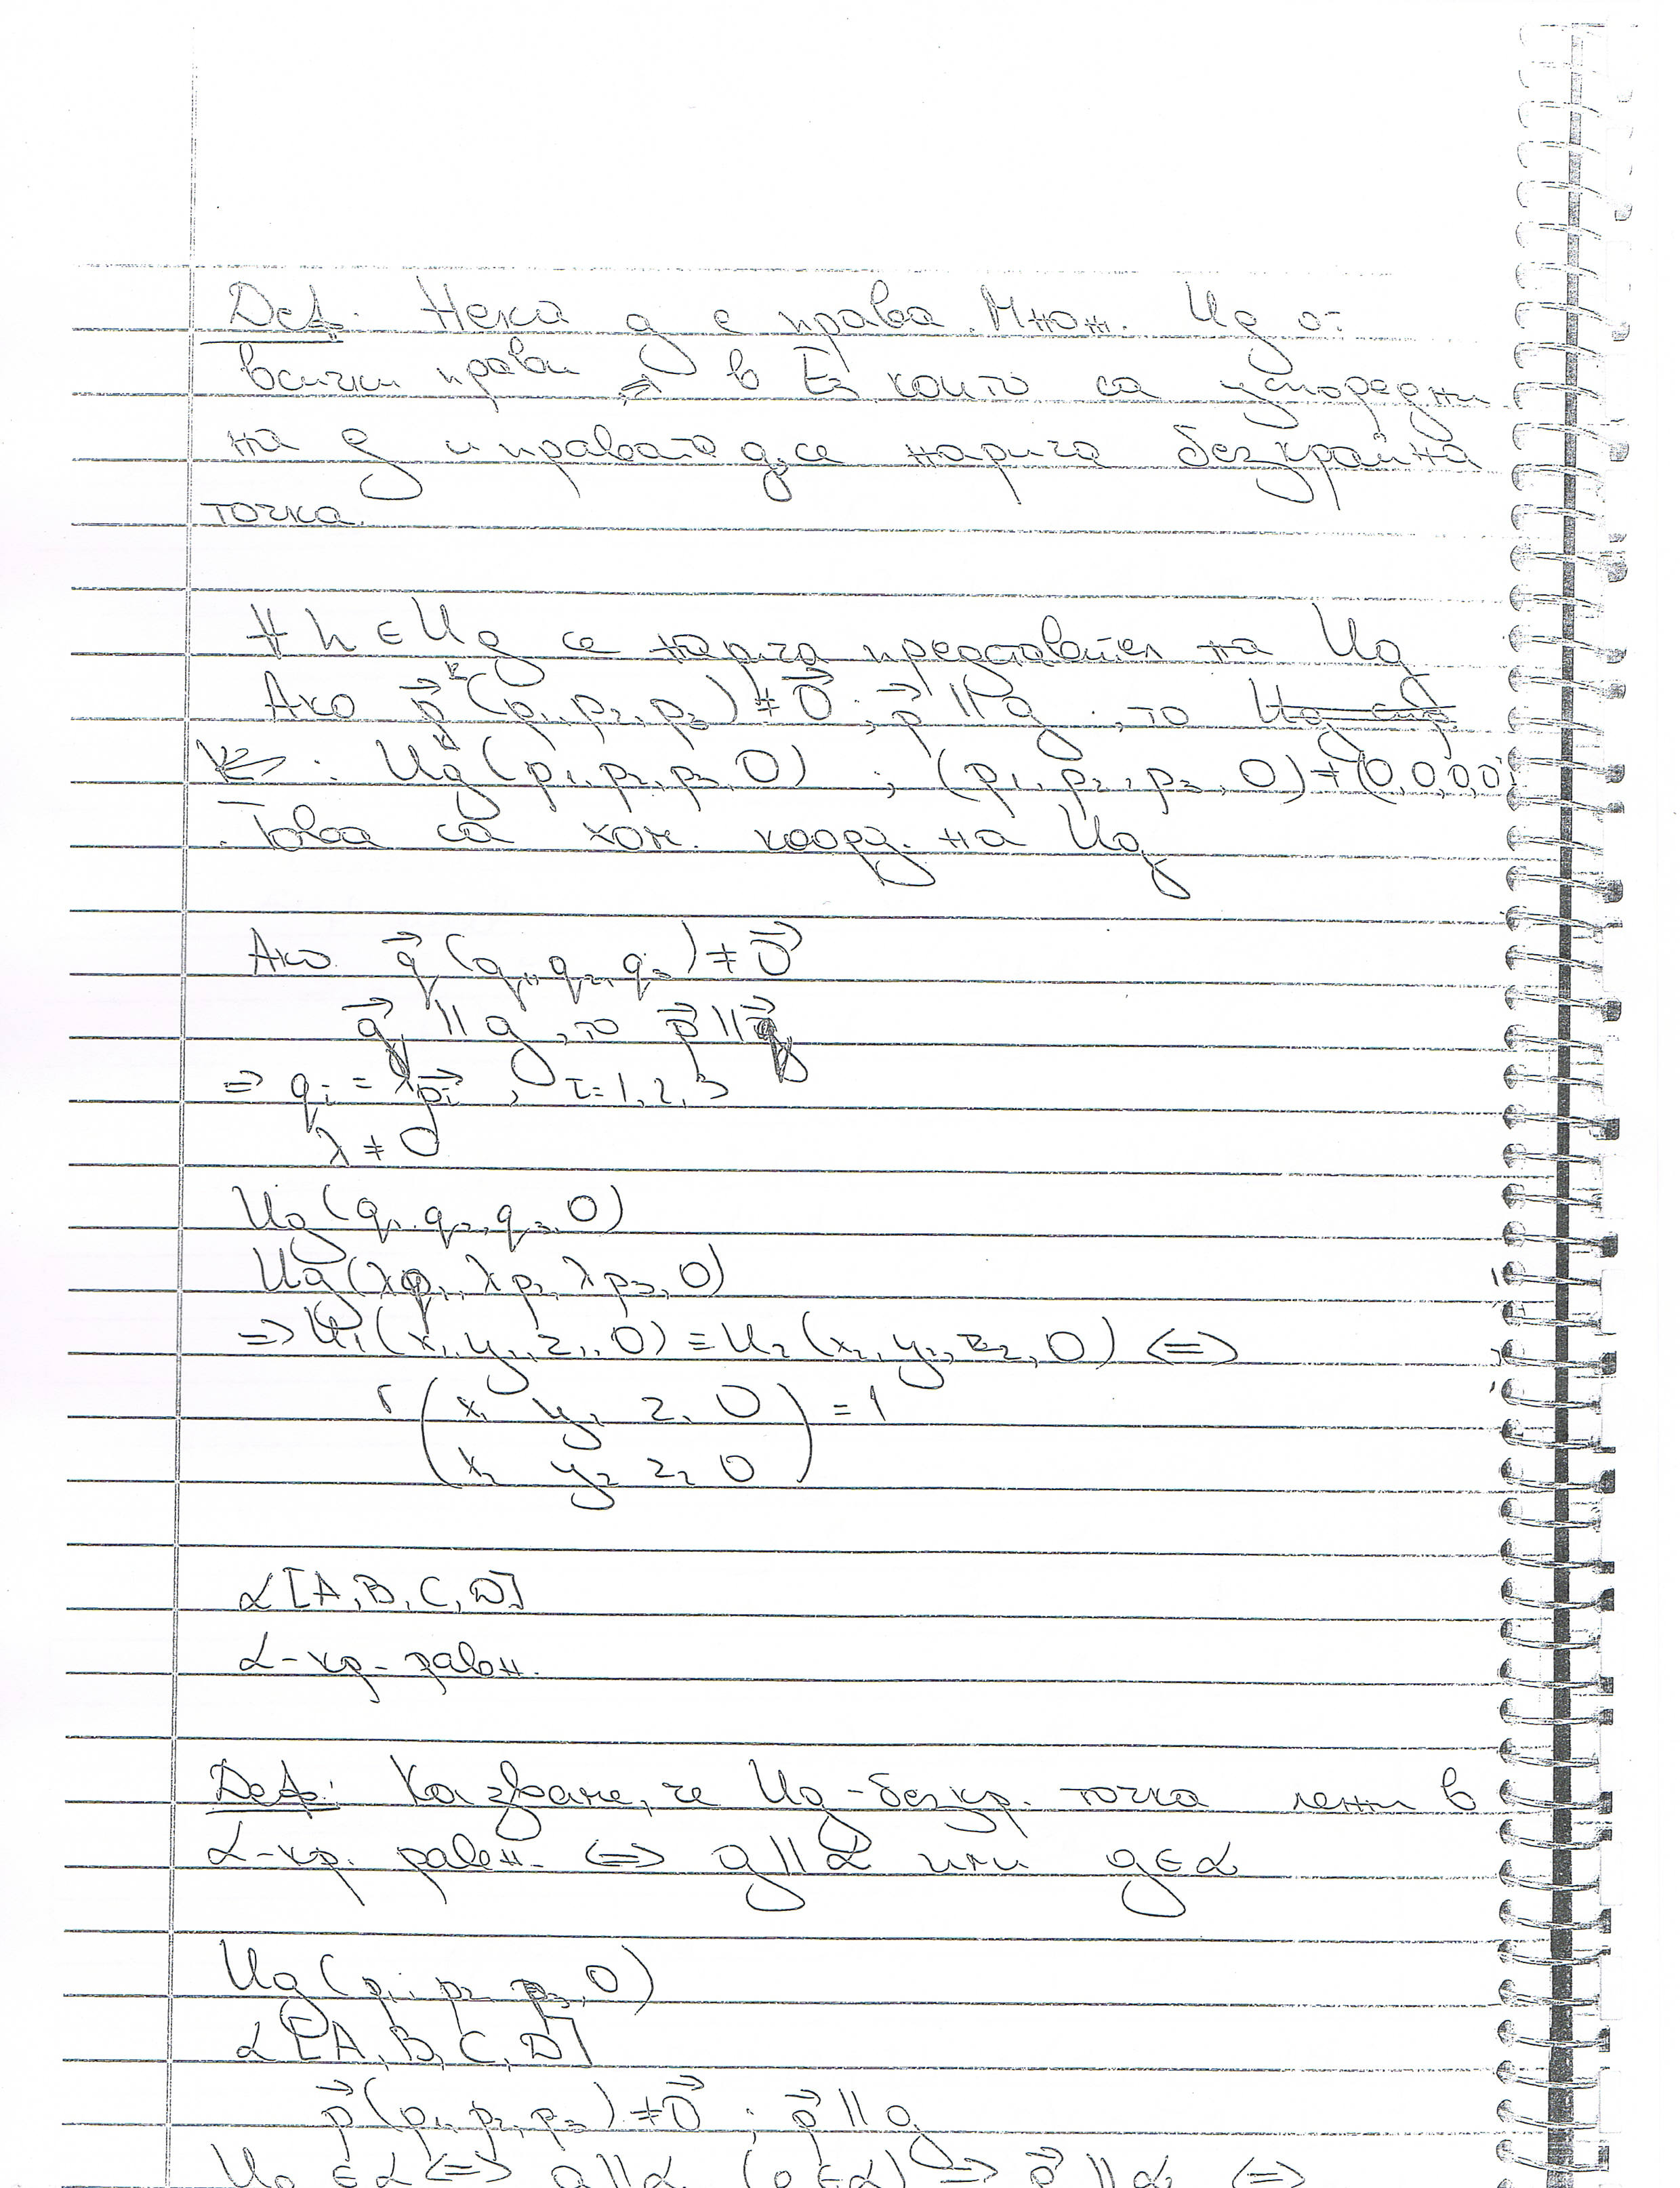 Деф. Нека g е права. Множ. Ug от
всички прави в E3, които са успоредни
на g и правата g, се нарича безкрайна
точка.
∀ h ∈ Ug се нарича представител на Ug
Ако p⃗ (p1, p2, p3) ≠ 0⃗ ; p⃗ ∥ g, то
K: Ug (p1, p2, p3, 0) ; (p1, p2, p3, 0) ≠ (0,0,0,0)
Това са хом. коорд. на Ug
Ако q⃗ (q1, q2, q3) ≠ 0⃗
q⃗ ∥ g, то p⃗ ∥ q⃗
=> qi = λpi, i=1,2,3
λ ≠ 0
Ug (q1, q2, q3, 0)
Ug (λp1, λp2, λp3, 0)
=> U1 (x1, y1, z1, 0) ≡ U2 (x2, y2, z2, 0) <=>
r ( x1 y1 z1 0 ) = 1
( x2 y2 z2 0 )
α [A, B, C, D]
α - кр. равн.
Деф: Казваме, че Ug - безкр. точка лежи в
α - кр. равн. <=> g ∥ α или g ∈ α
Ug (p1, p2, p3, 0)
α [A, B, C, D]
p⃗ (p1, p2, p3) ≠ 0⃗ ; p⃗ ∥ g
Ug ∈ α <=> g ∥ α (g ∈ α) => p⃗ ∥ α <=>